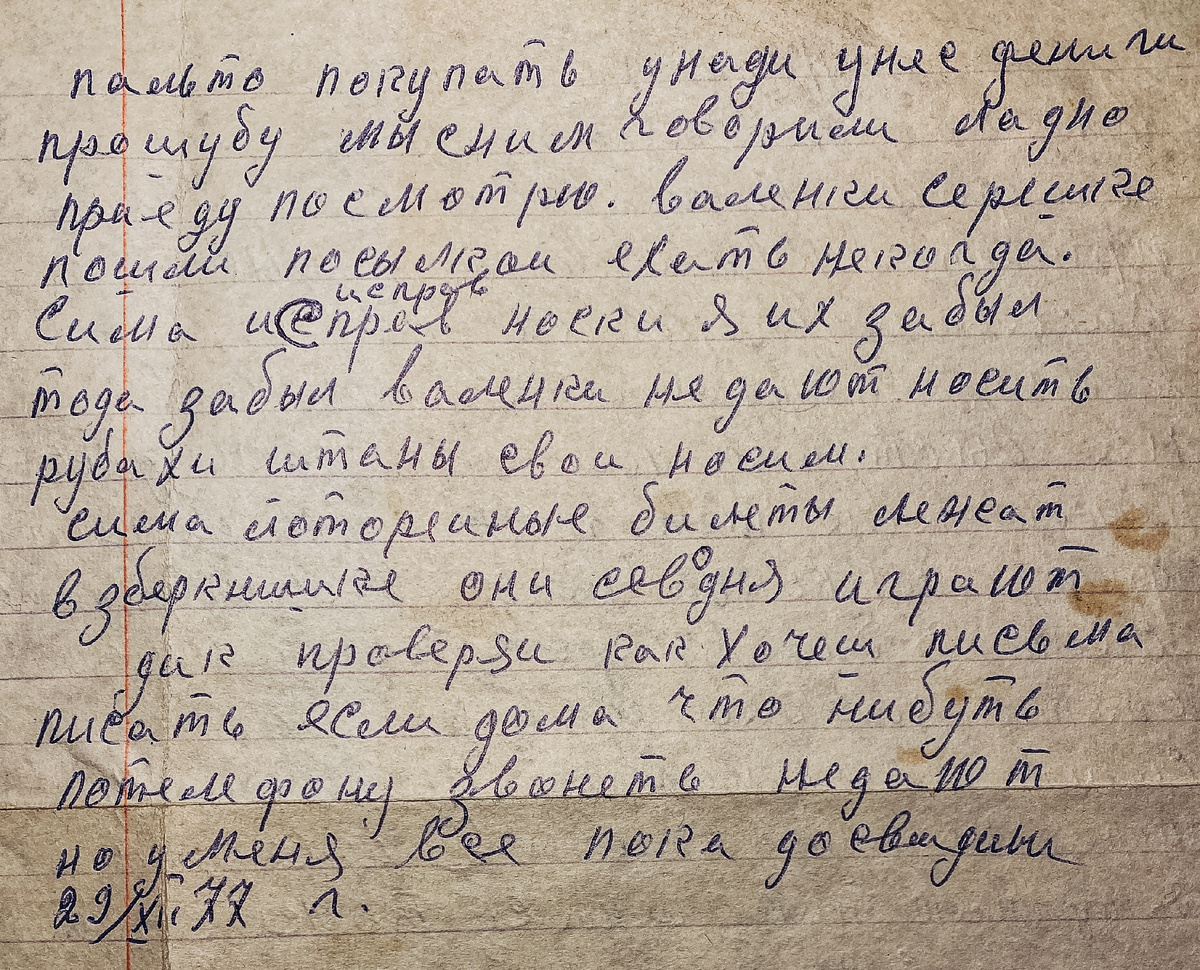 пальто покупать унади уняе дениги
прошубу мы сним говорили ладно
прийеду посмотрю. валенки сережке
пошли посылкои ехать некогда.
исправ
Сима исправ носки я их забыл
тода забыл валенки не дают носить
рубахи штаны свои носим.
сима лоторейные билеты лежат
взберкнишке они севодня играют
дак проверяи как хочеш письма
писать если дома что нибуть
потелефону звонеть недают
но уменя все пока досвидини
29/XII 77 г.